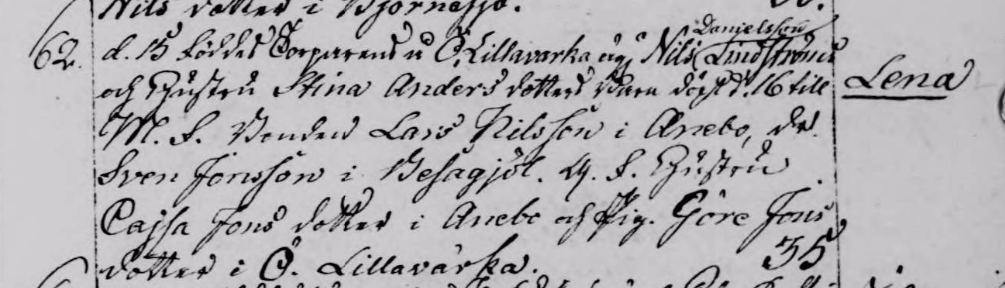 Nils dotter i Björnasjö.
Danielsson
62. d. 15 föddes Torparens u Ö. Lillavarka äg. Nils Lindströms
och Hustru Stina Anders dotters Barn döpt d. 16 till Lena
M. F. Bonden Lars Nilsson i Anebo, dr.
Sven Jonsson i Besagjöl. Q. F. Hustru
Cajsa Jons dotter i Anebo och Pig. Göre Jons
dotter i Ö. Lillavarka. 35